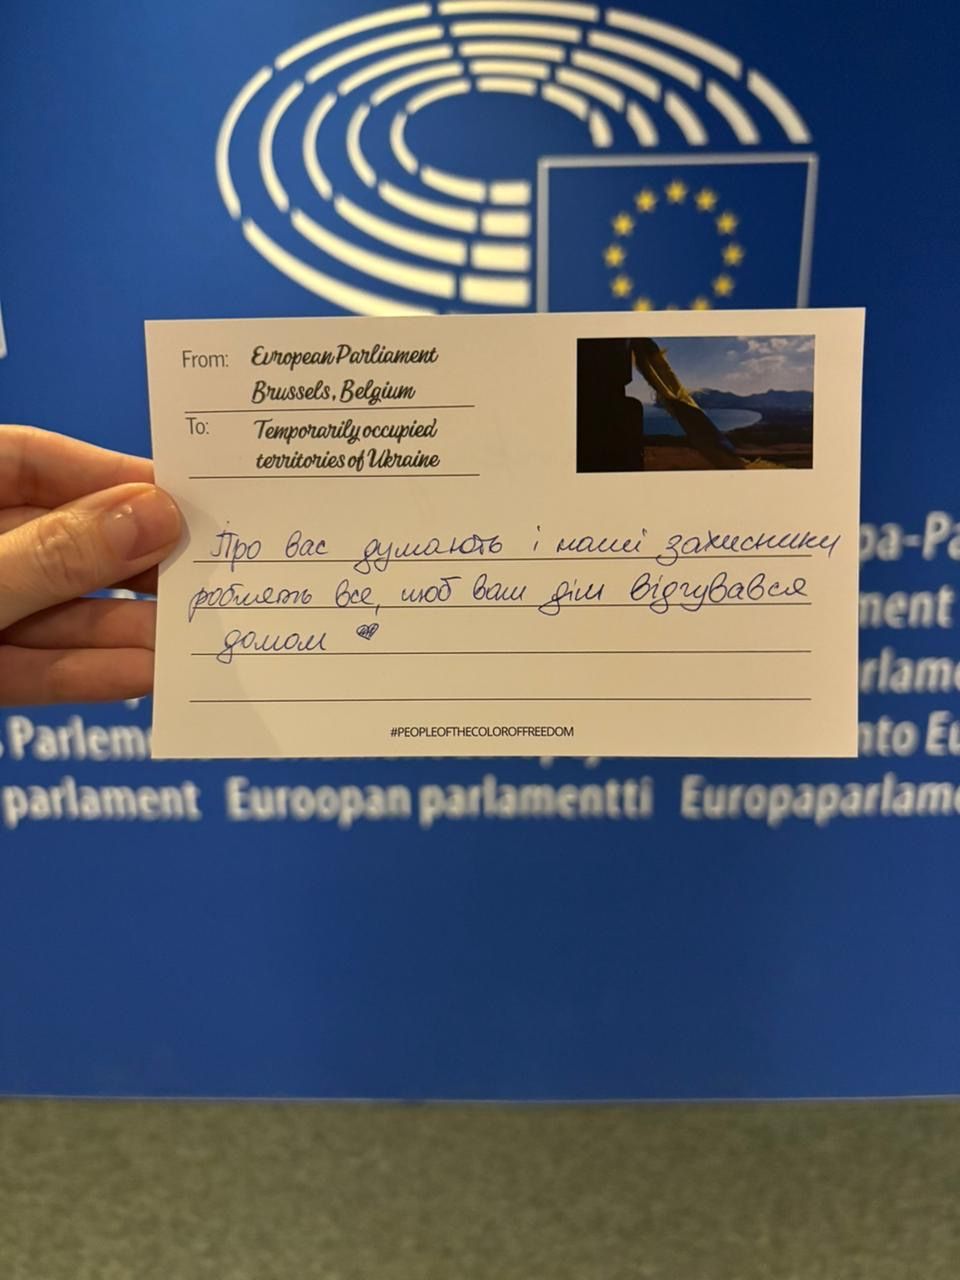 From: European Parliament
Brussels, Belgium
To: Temporarily occupied
territories of Ukraine
Про вас думають і наші захисники
роблять все, щоб ваш дім відчувався
домом
#PEOPLEOFTHECOLOROFFREEDOM
pa-Pa
ment
rlame
Parlem
nto Eu
parlament Euroopan parlamentti Europaparlame